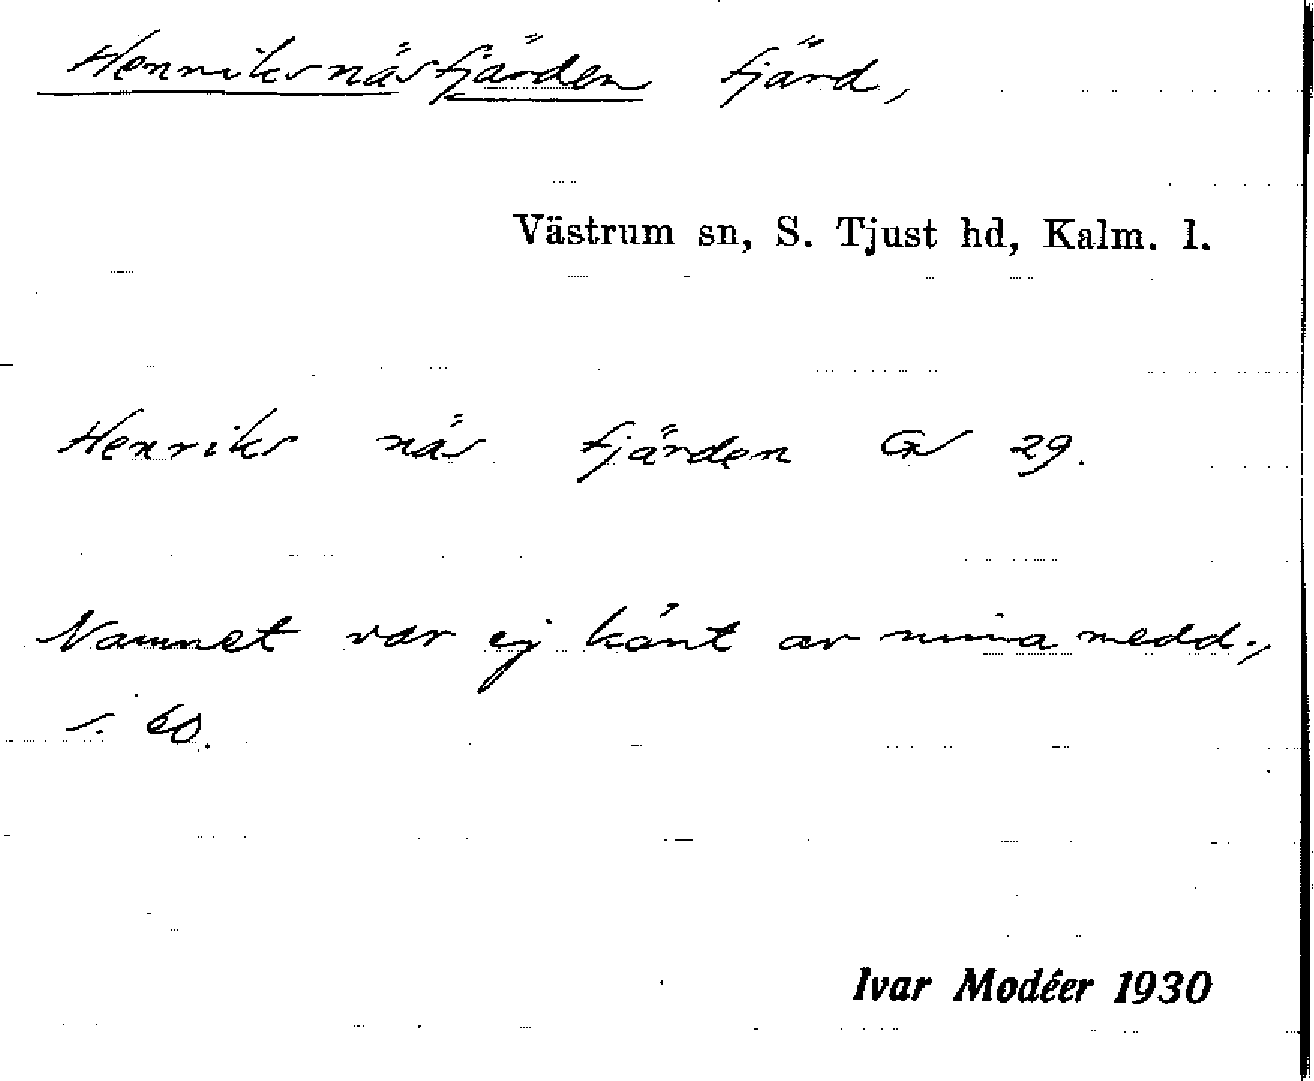 Henriksnäsfjärden fjärd,
Västrum sn, S. Tjust hd, Kalm. l.
Henriks näs fjärden GS 29.
Namnet var ej känt av mina medd.,
s. 60.
Ivar Modéer 1930